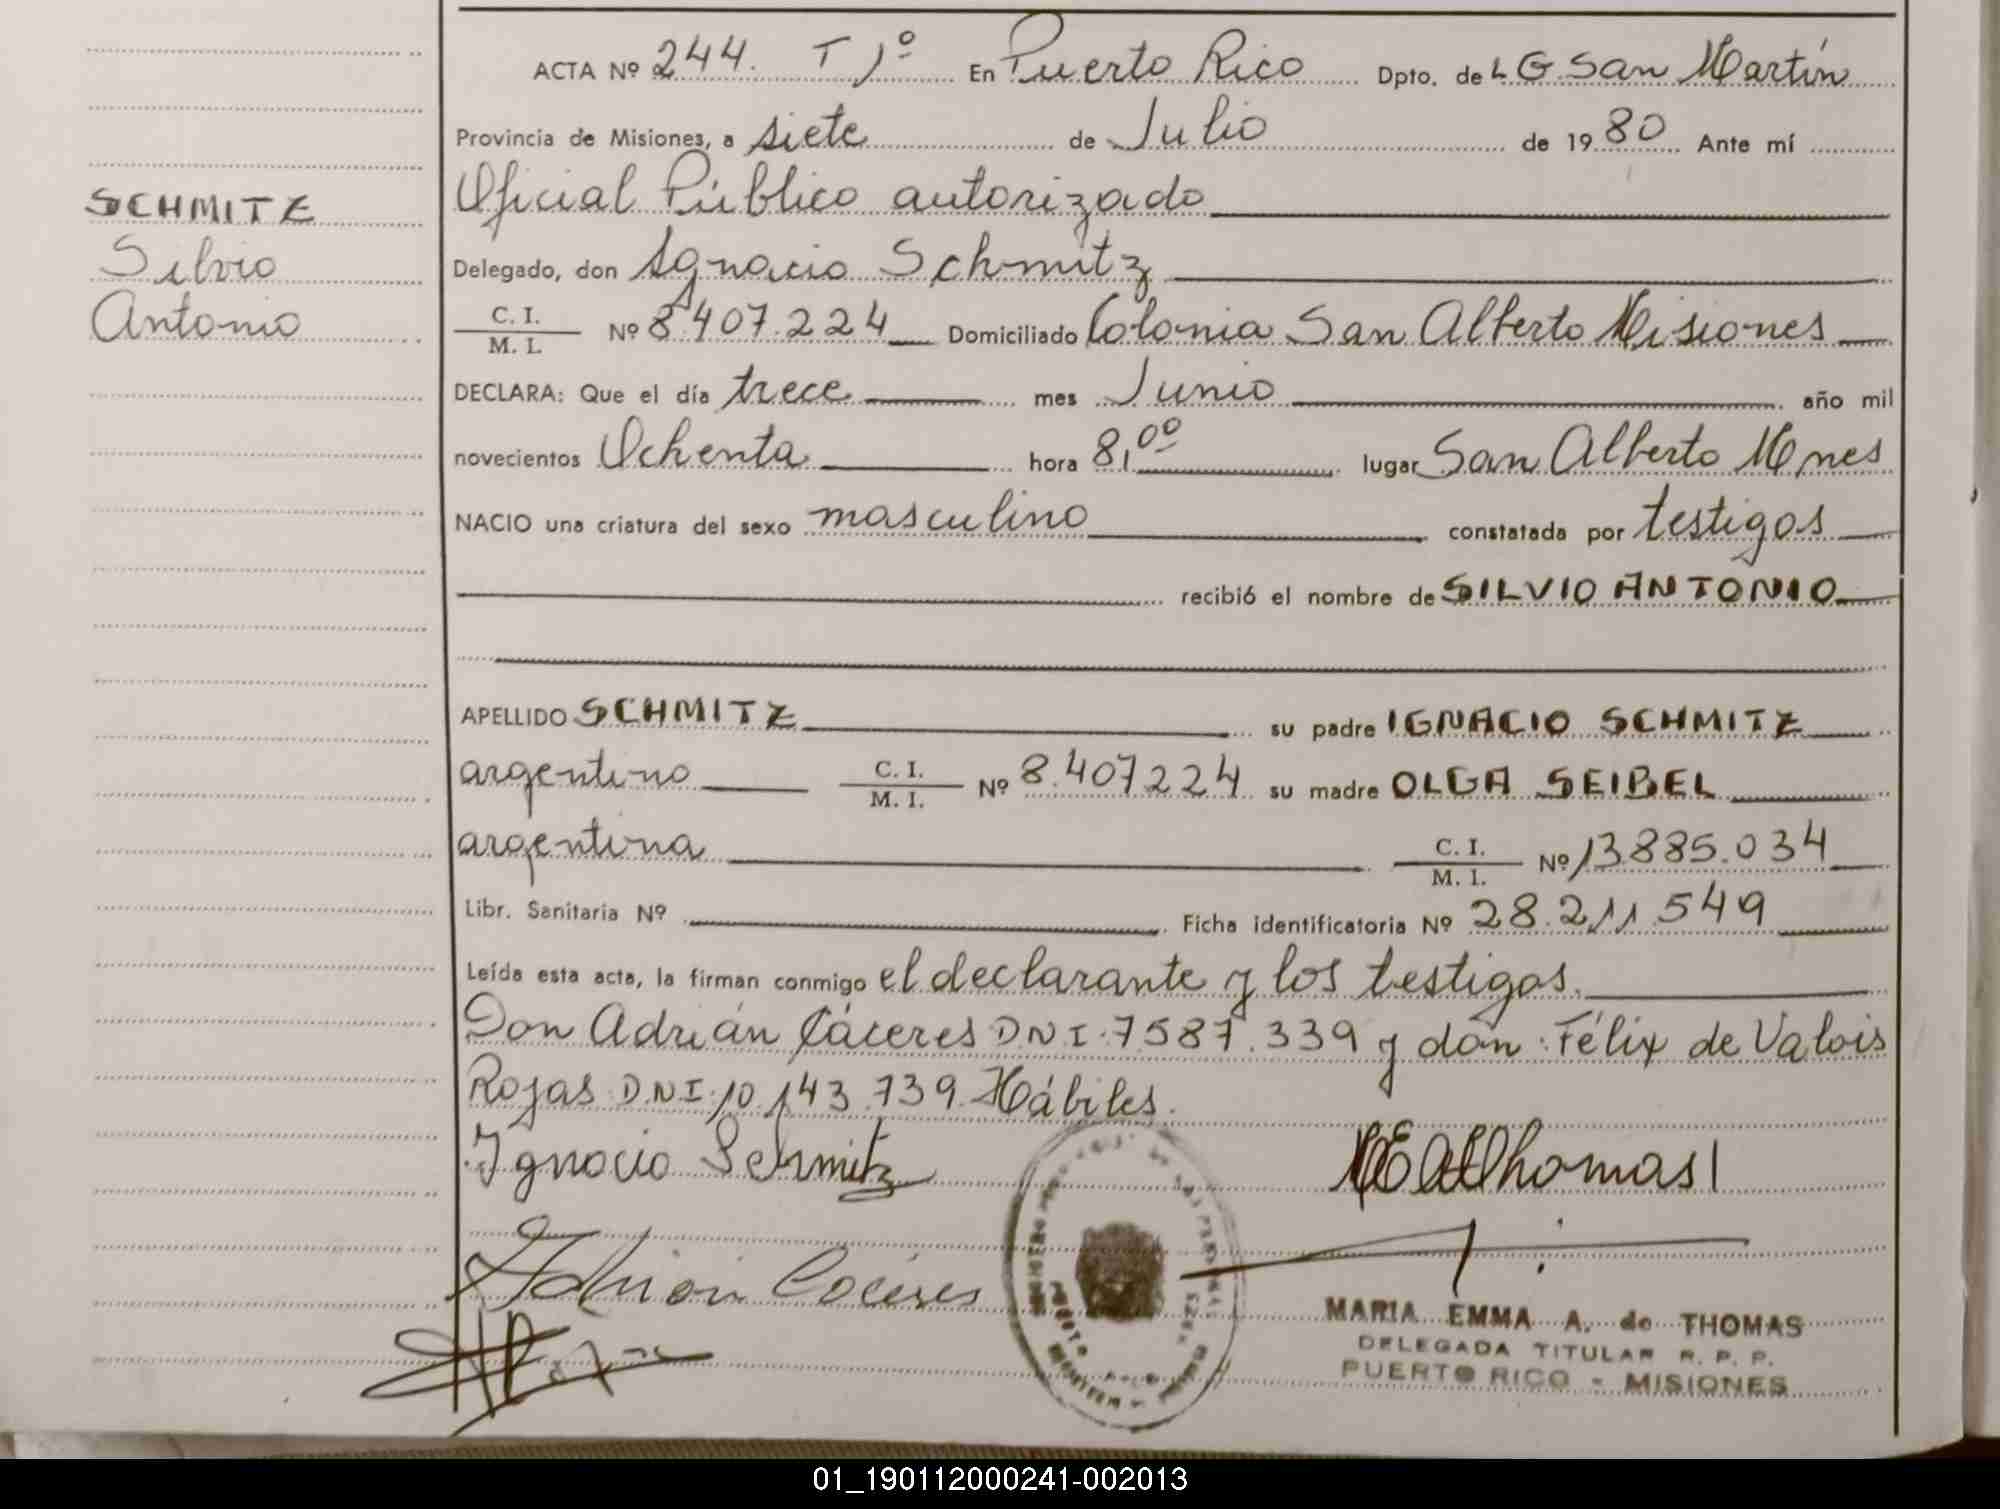 ACTA Nº 244. T 1º En Puerto Rico Dpto. de L G San Martín
Provincia de Misiones, a siete de Julio de 1980 Ante mí
Oficial Público autorizado
SCHMITZ
Silvio
Antonio
Delegado, don Ignacio Schmitz
C. I. / M. I. Nº 8.407.224 Domiciliado Colonia San Alberto Misiones
DECLARA: Que el día trece mes Junio año mil
novecientos Ochenta hora 8,00 lugar San Alberto Mnes
NACIO una criatura del sexo masculino constatada por testigos
recibió el nombre de SILVIO ANTONIO
APELLIDO SCHMITZ su padre IGNACIO SCHMITZ
argentino C. I. / M. I. Nº 8.407224 su madre OLGA SEIBEL
argentina C. I. / M. I. Nº 13.885.034
Libr. Sanitaria Nº Ficha identificatoria Nº 28.211.549
Leída esta acta, la firman conmigo el declarante y los testigos.
Don Adrián Cáceres D N I.7.587.339 y don Félix de Valois
Rojas D.N.I.10.143.739. Hábiles.
Ignacio Schmitz
MEA Thomas
Adrián Cáceres
MARIA EMMA A. de THOMAS
DELEGADA TITULAR R. P. P.
PUERTO RICO - MISIONES
01_190112000241-002013